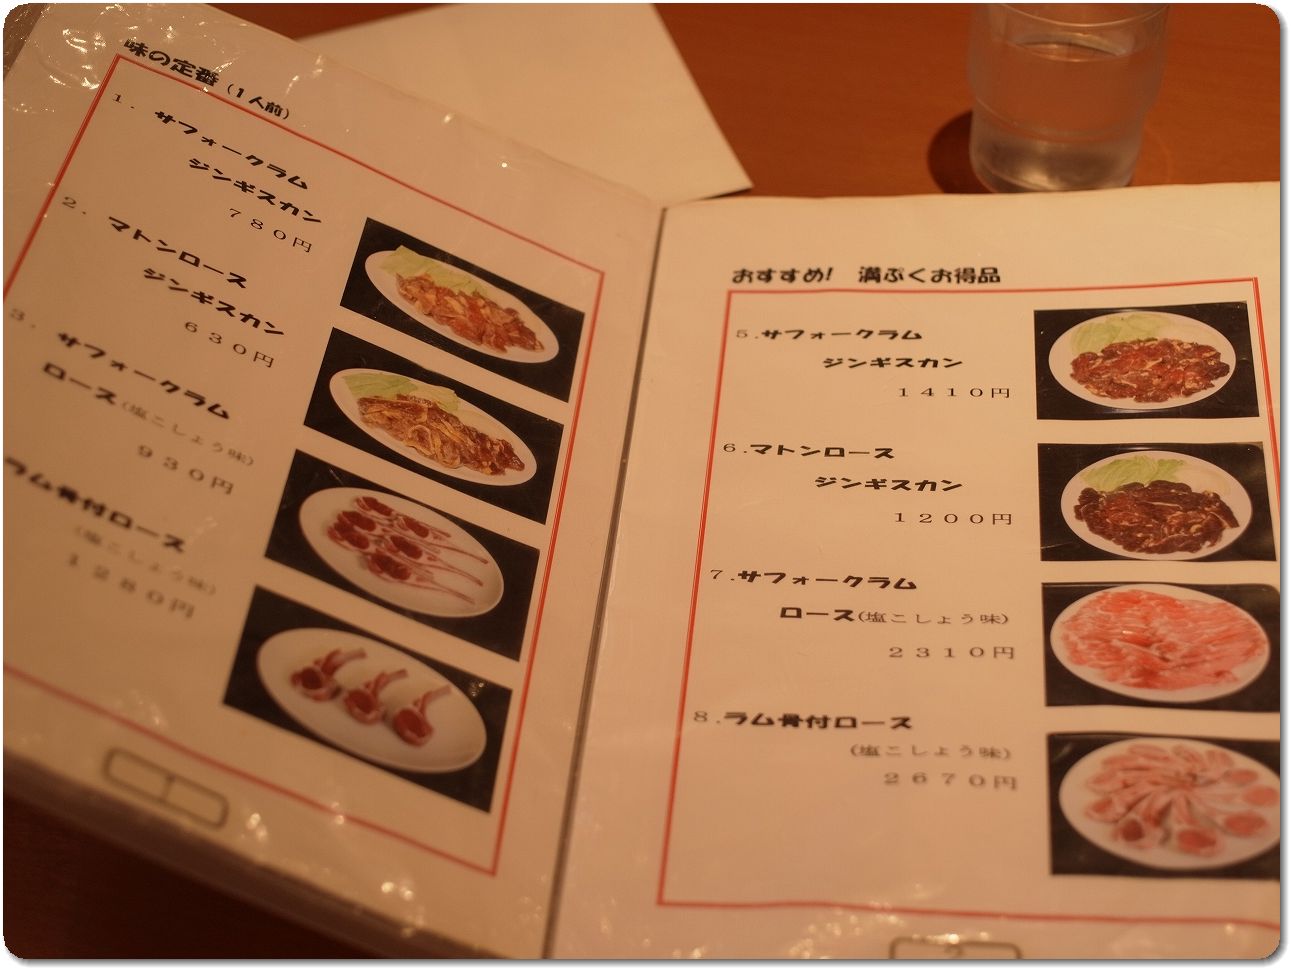 味の定番（１人前）
１．サフォークラム
ジンギスカン
７８０円
２．マトンロース
ジンギスカン
６３０円
３．サフォークラム
ロース（塩こしょう味）
９３０円
ラム骨付ロース
（塩こしょう味）
１２８０円
おすすめ！　満ぷくお得品
５．サフォークラム
ジンギスカン
１４１０円
６．マトンロース
ジンギスカン
１２００円
７．サフォークラム
ロース（塩こしょう味）
２３１０円
８．ラム骨付ロース
（塩こしょう味）
２６７０円